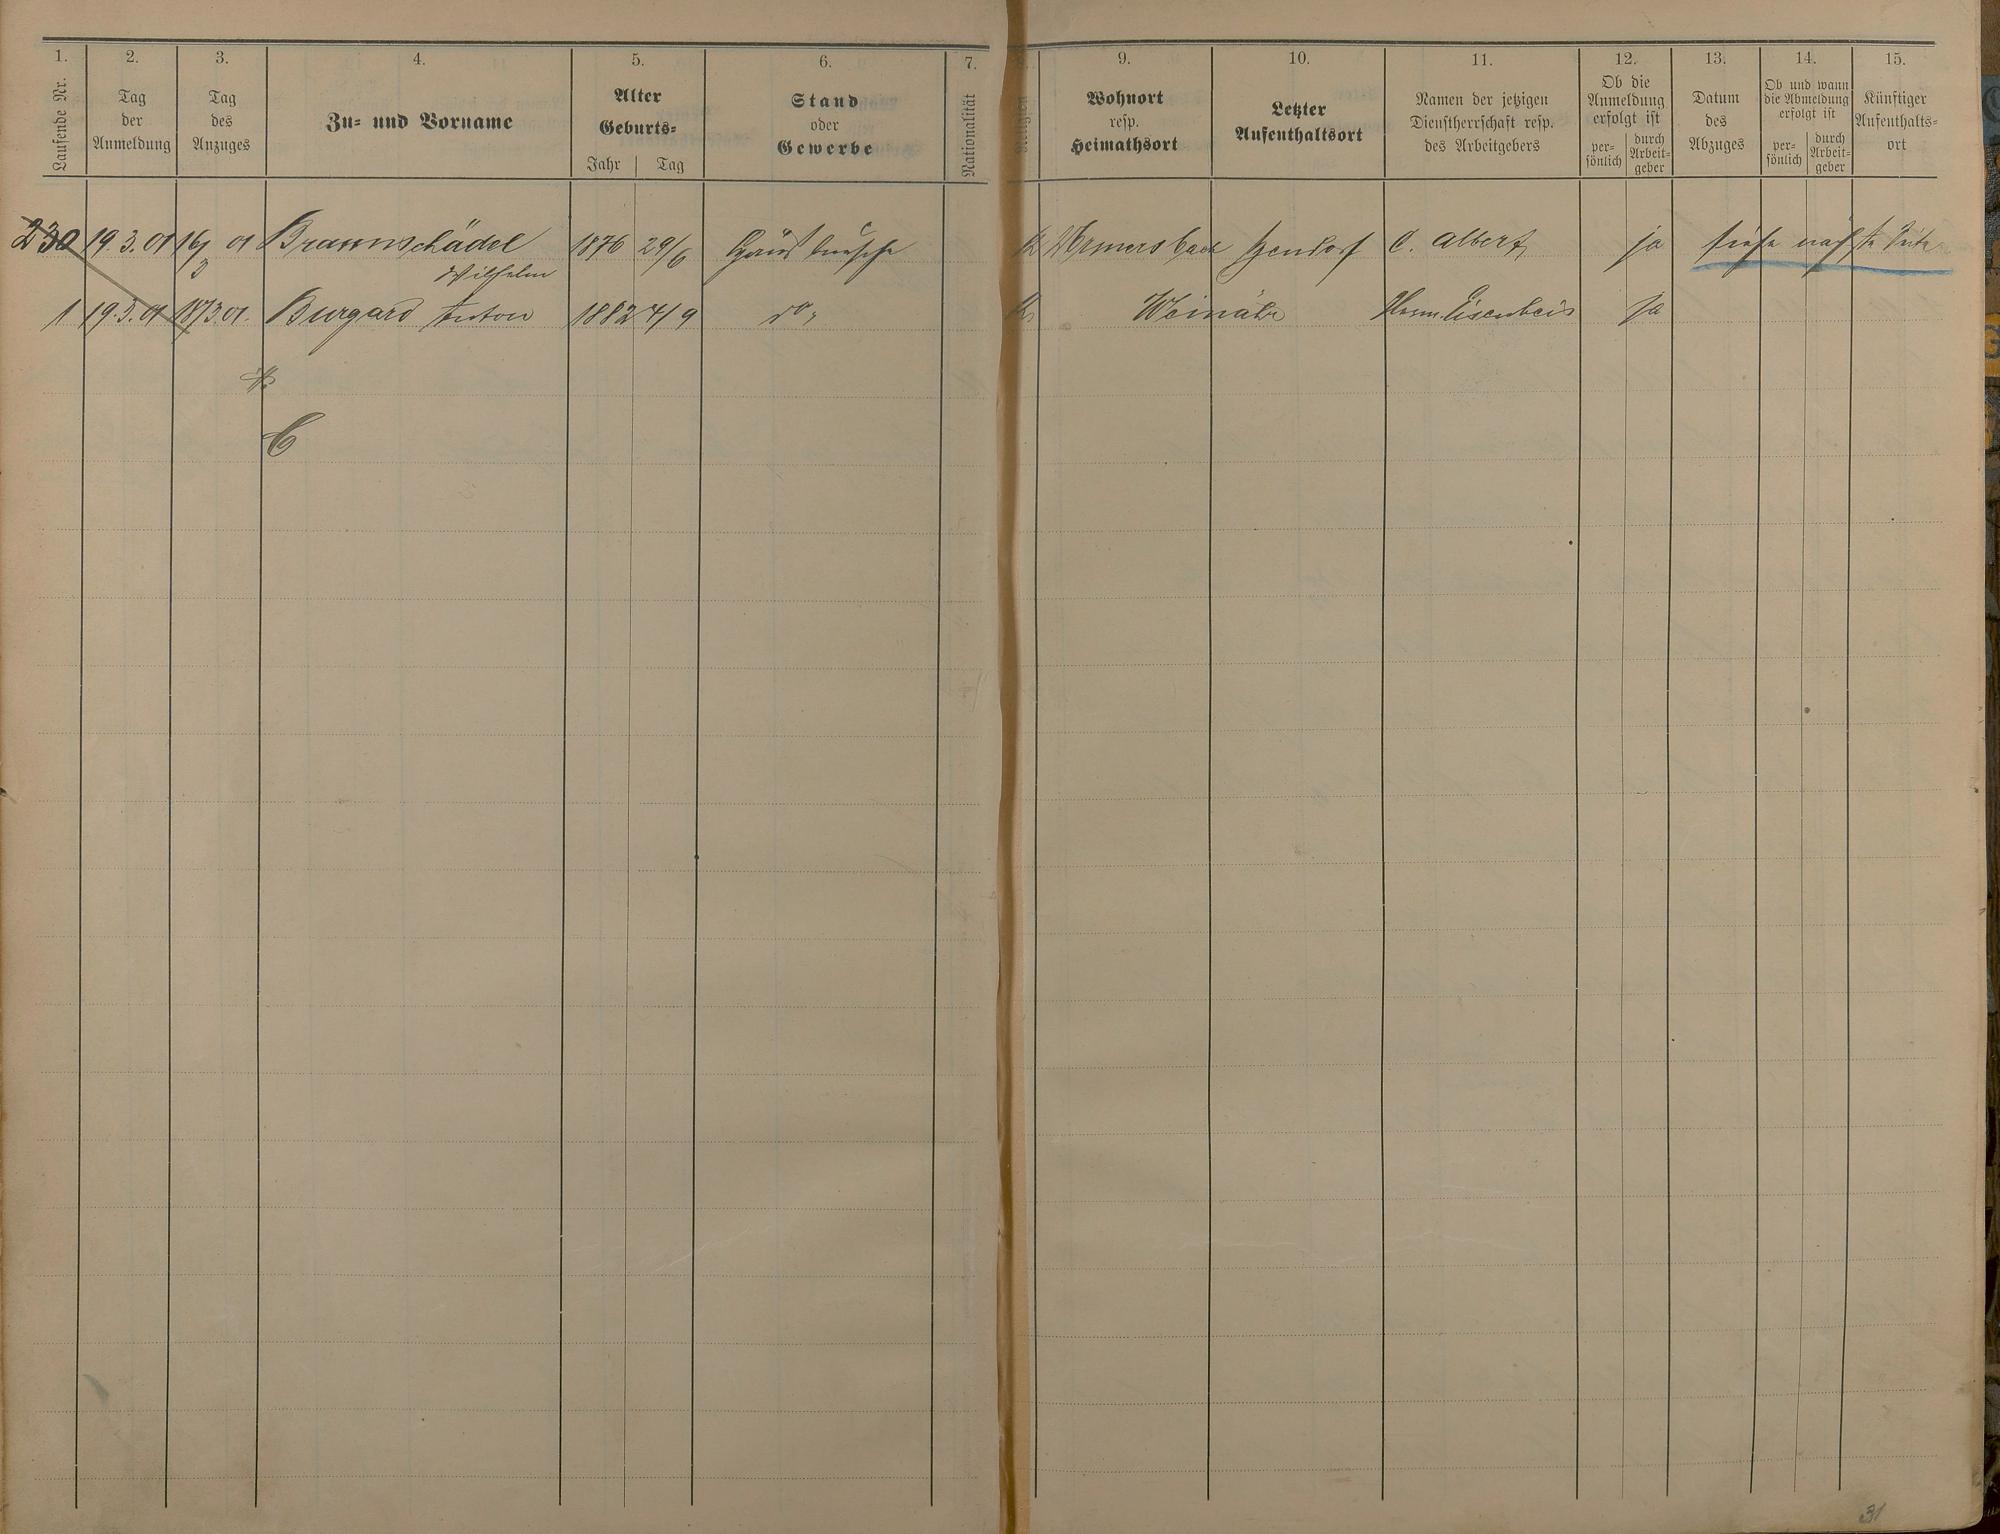 1. 2. 3. 4. 5. 6. 7. 8. 9. 10. 11. 12. 13. 14. 15.
Laufende Nr.
Tag
der
Anmeldung
Tag
des
Anzuges
Zu- und Vorname
Alter
Geburts-
Jahr Tag
Stand
oder
Gewerbe
Nationalität
Religion
Wohnort
resp.
Heimathsort
Letzter
Aufenthaltsort
Namen der jetzigen
Dienstherrschaft resp.
des Arbeitgebers
Ob die
Anmeldung
erfolgt ist
per-
sönlich
durch
Arbeit-
geber
Datum
des
Abzuges
Ob und wann
die Abmeldung
erfolgt ist
per-
sönlich
durch
Arbeit-
geber
Künftiger
Aufenthalts-
ort
230 19.3.01 16/3 01 Braunschädel 1876 29/6 Hausbursche K C. Albert ja siehe nächste Seite
Wilhelm
1 19.3.01 18/3.01. Burgard Anton 1882 4/9 do K Weinähr Herm. Eisenbeis ja
C
31